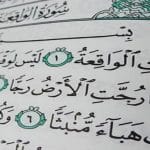 سُورَةُ الوَاقِعَةِ
بِسْ
تِ ٱلْوَاقِعَةُ ١ لَيْسَ لِوَقْ
رُجَّتِ ٱلْأَرْضُ رَجًّا
هَبَآءً مُّنۢبَثًّا ٦ وَكُ